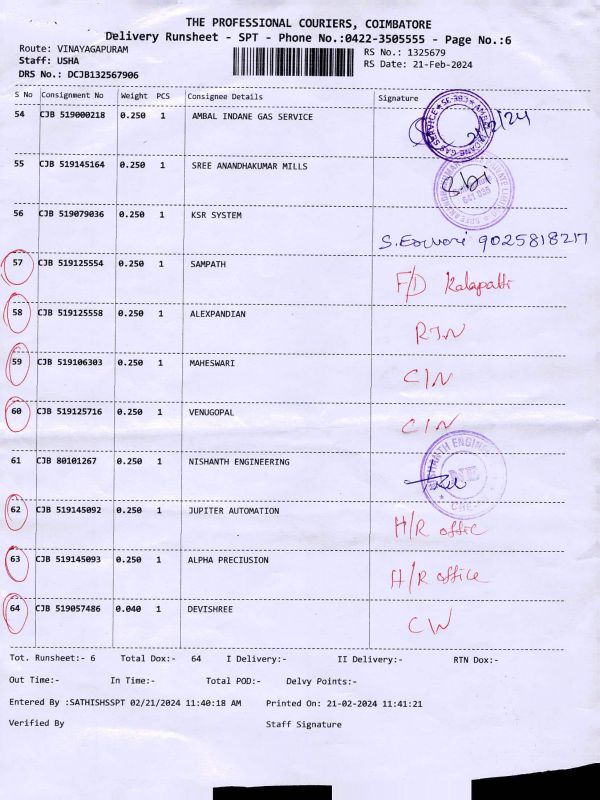 THE PROFESSIONAL COURIERS, COIMBATORE
Delivery Runsheet - SPT - Phone No.:0422-3505555 - Page No.:6
Route: VINAYAGAPURAM
Staff: USHA
DRS No.: DCJB132567906
RS No.: 1325679
RS Date: 21-Feb-2024
S No Consignment No Weight PCS Consignee Details Signature
54 CJB 519000218 0.250 1 AMBAL INDANE GAS SERVICE 21/2/24
55 CJB 519145164 0.250 1 SREE ANANDHAKUMAR MILLS
56 CJB 519079036 0.250 1 KSR SYSTEM
S. Eswari 9025818217
57 CJB 519125554 0.250 1 SAMPATH F/D Kalapatti
58 CJB 519125558 0.250 1 ALEXPANDIAN RTN
59 CJB 519106303 0.250 1 MAHESWARI CIN
60 CJB 519125716 0.250 1 VENUGOPAL CIN
61 CJB 80101267 0.250 1 NISHANTH ENGINEERING
62 CJB 519145092 0.250 1 JUPITER AUTOMATION H/R office
63 CJB 519145093 0.250 1 ALPHA PRECIUSION H/R office
64 CJB 519057486 0.040 1 DEVISHREE CIN
Tot. Runsheet:- 6 Total Dox:- 64 I Delivery:- II Delivery:- RTN Dox:-
Out Time:- In Time:- Total POD:- Delvy Points:-
Entered By :SATHISHSSPT 02/21/2024 11:40:18 AM Printed On: 21-02-2024 11:41:21
Verified By Staff Signature